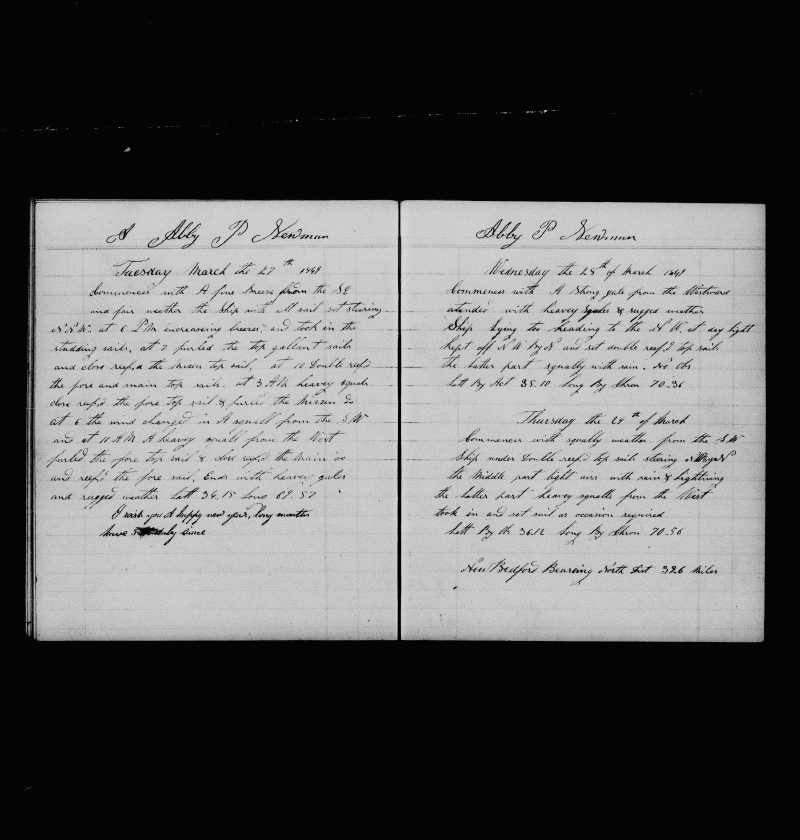 A Abby P Newman
Tuesday March the 27th 1849
Commences with A fine Breeze from the SE
and fair weather the Ship with all sail set steering
N.N.W. at 6 P.M increasing breezes and took in the
studding sails, at 7 furled the top gallant sails
and close reef,d the Mizen top sail, at 10 Double reef,d
the fore and main top sails. at 3 AM heavy squals
close reef,d the fore top sail & furled the Mizzen do
at 6 the wind changed in A squall from the S.W
and at 11 A.M A heavy squall from the West
furled the fore top sail & close reef,d the Main do
and reef,d the fore sail, Ends with heavy gales
and rugged weather Latt 34.15 Long 69.57
I wish you A happy new year, long months
have by since
Abby P Newman
Wednesday the 28th of March 1849
Commences with A Strong gale from the Westward
atended with heavy squals & rugged weather
Ship Lying too heading to the N.W. at day light
kept off N W By N and set double reef,d top sails
the latter part squally with rain. No Obs
Latt By Act 35.10 Long By Chron 70.36
Thursday the 29th of March
Commences with squally weather from the S.W
Ship under Double reef,d top sails steering
the Middle part light airs with rain & lightning
the latter part heavy squalls from the West
took in and set sail as occasion required
Latt By Obs 36.12 Long By Chron 70.56
New Bedford Bearing North Dist 326 Miles